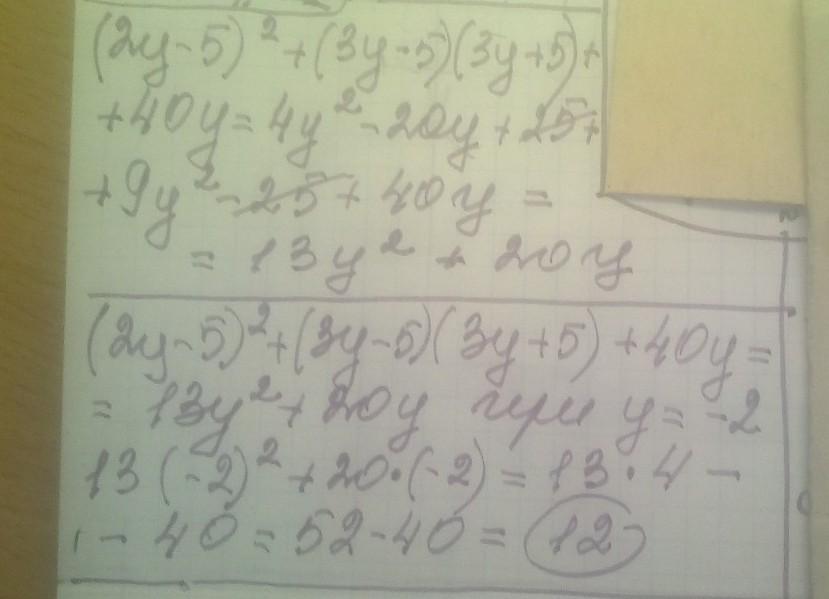 (2y-5)²+(3y-5)(3y+5)+
+40y=4y²-20y+25+
+9y²-25+40y=
=13y²+20y
(2y-5)²+(3y-5)(3y+5)+40y=
=13y²+20y при y=-2
13(-2)²+20·(-2)=13·4-
-40=52-40=12